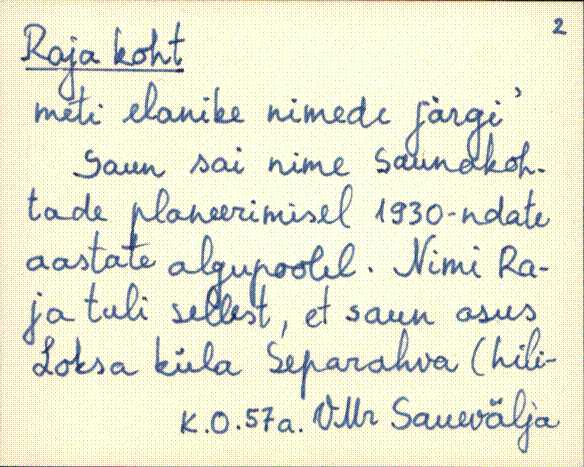 2
Raja koht
mēti elanike nimede järgi’
Saun sai nime saunakoh-
tade planeerimisel 1930-ndate
aastate algupoolel. Nimi Ra-
ja tuli sellest, et saun asus
Loksa küla Separahva (hili-
K.O. 57a. VMr Sauevälja